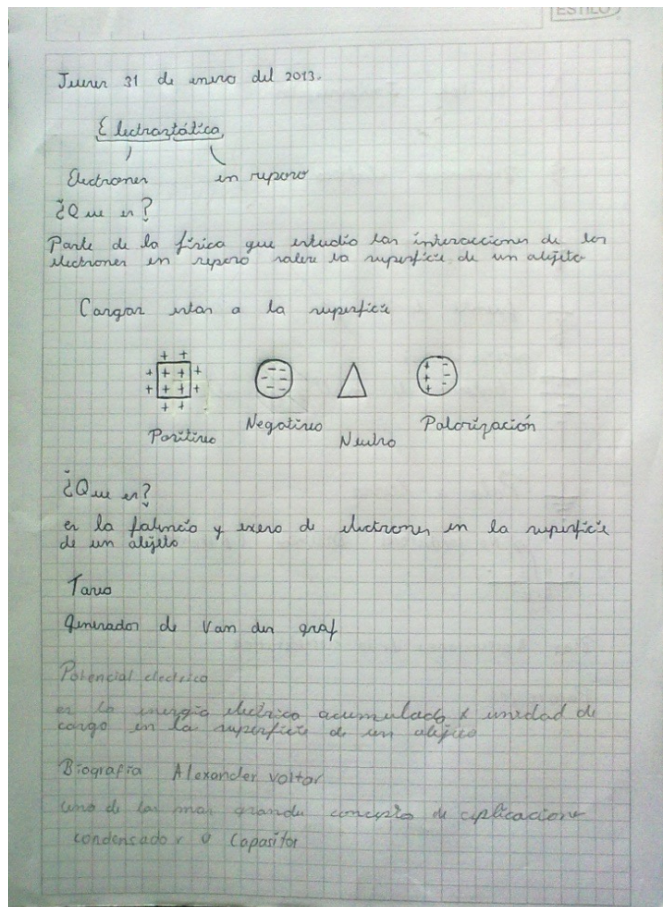 ESTILO
Jueves 31 de enero del 2013.
Electrostática
Electrones en reposo
¿Que es?
Parte de la física que estudia las interacciones de los
electrones en reposo sobre la superficie de un objeto
Cargas estan a la superficie
+ +
+ + + +
+ + + +
+ +
- - - - - -
+ + + - - -
Positivo Negativo Neutro Polorización
¿Que es?
es la falencia y exeso de electrones en la superficie
de un objeto
Tarea
generador de Van der graf
Potencial electrico
es la energia electrica acumulada x unidad de
carga en la superficie de un objeto
Biografia Alexander voltar
uno de los mas grande concepto de aplicacione
condensador o Capasitor